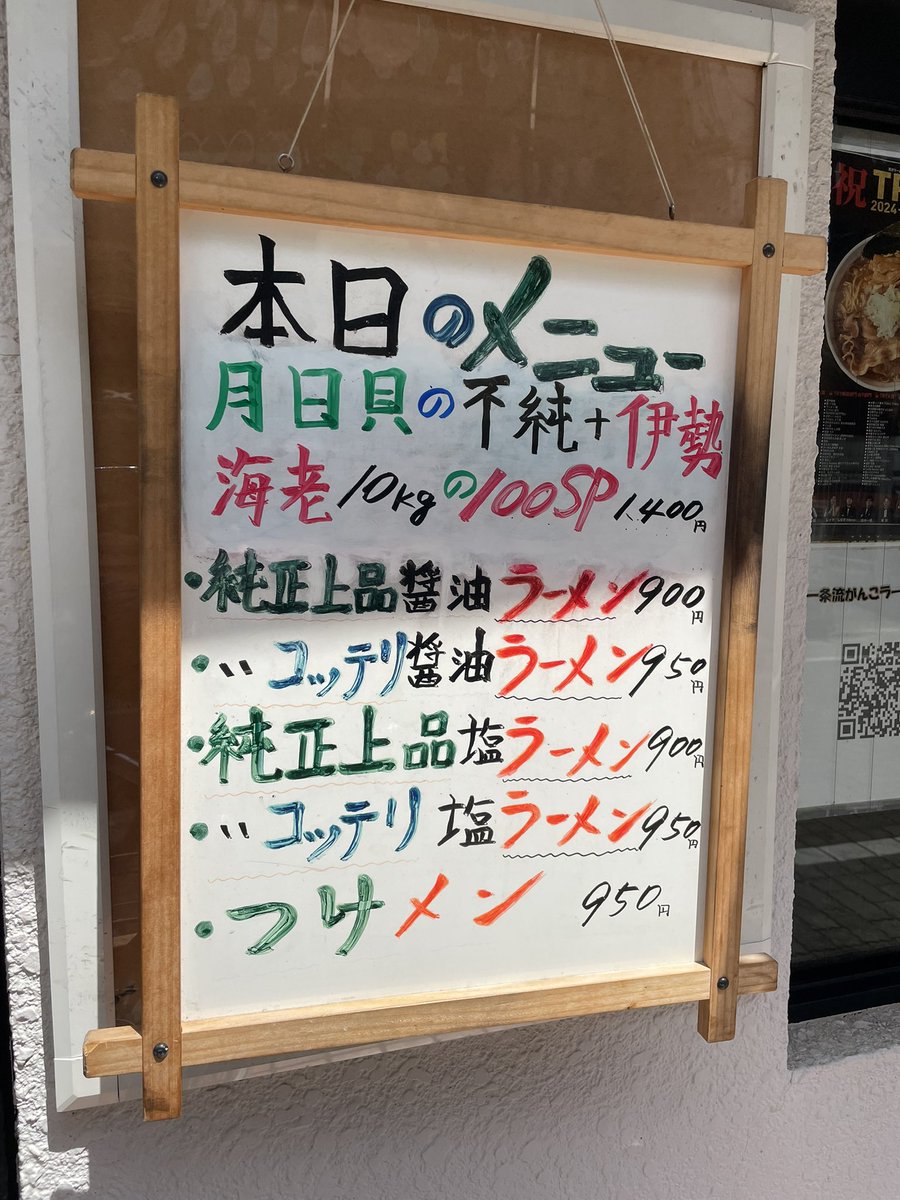 本日のメニュー
月日貝の不純+伊勢
海老10kgの100SP 1,400円
・純正上品醤油ラーメン900円
・〃コッテリ醤油ラーメン950円
・純正上品塩ラーメン900円
・〃コッテリ 塩ラーメン950円
・つけメン 950円
祝
2024
一条流がんこラー